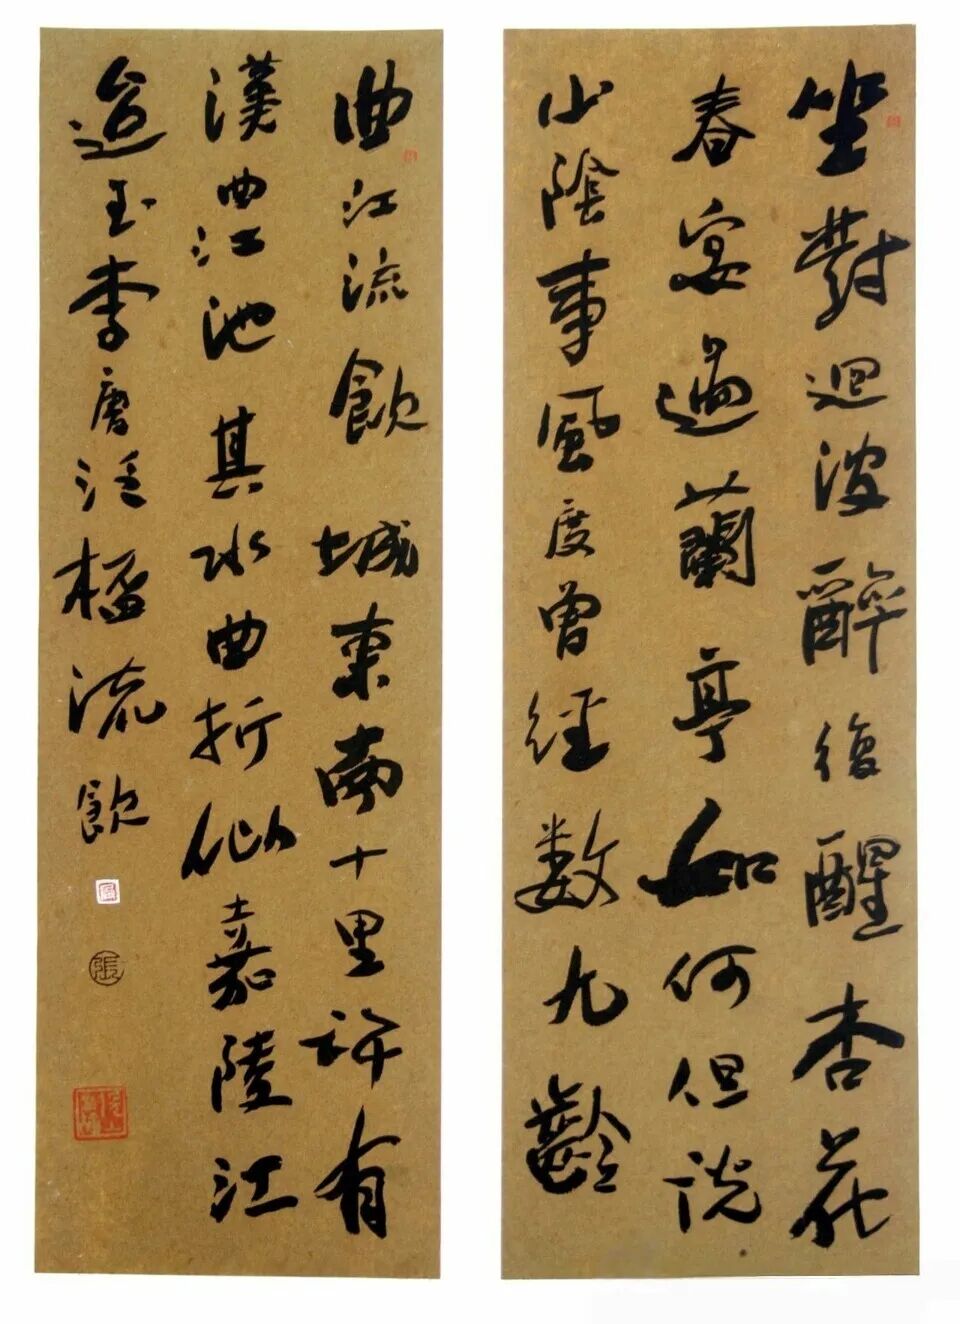 坐對迴波醉復醒杏花
春宴過蘭亭如何但説
山陰事風度曾經數九齡
曲江流飲 城東南十里許有
漢曲江池其水曲折似嘉陵江
迨至李唐泛桮流飲
張